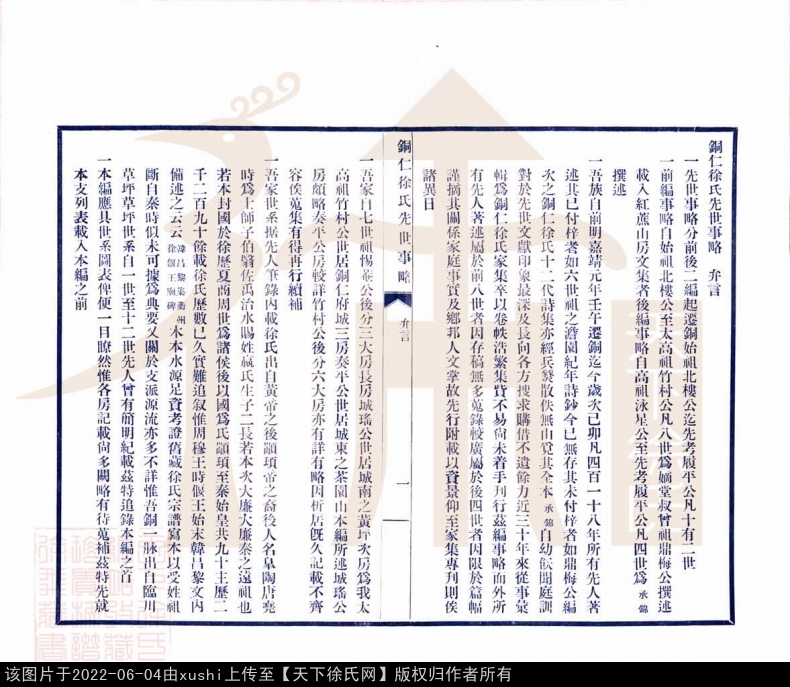 銅仁徐氏先世事略　弁言
一先世事略分前後二編起遷銅始祖北樓公迄先考履平公凡十有二世
一前編事略自始祖北樓公至太高祖竹村公凡八世爲嫡堂叔曾祖鼎梅公撰述
載入紅蕉山房文集者後編事略自高祖泳星公至先考履平公凡四世爲承錦
撰述
一吾族自前明嘉靖元年壬午遷銅迄今歲次己卯凡四百一十八年所有先人著
述其已付梓者如六世祖之澹園紀年詩鈔今已無存其未付梓者如鼎梅公編
次之銅仁徐氏十二代詩集亦經兵燹散佚無由覓其全本承錦自幼飫聞庭訓
對於先世文獻印象最深及長向各方搜求購借不遺餘力近三十年來從事彙
輯爲銅仁徐氏家集卒以卷帙浩繁集貲不易尚未着手刊行茲編事略而外所
有先人著述屬於前八世者因存稿無多蒐錄較廣屬於後四世者因限於篇幅
謹摘其關係家庭事實及鄉邦人文掌故先行附載以資景仰至家集專刊則俟
諸異日
銅仁徐氏先世事略
弁言
一
一吾家自七世祖惕菴公後分三大房長房城瑤公世居城南之黃坪次房爲我太
高祖竹村公世居銅仁府城三房奏平公世居城東之茶園山本編所述城瑤公
房頗略奏平公房較詳竹村公後分六大房亦有詳有略因析居旣久記載不齊
容俟蒐集有得再行續補
一吾家世系据先人筆錄內載徐氏出自黃帝之後顓頊帝之裔後人名臯陶唐堯
時爲上師子伯翳佐禹治水賜姓嬴氏生子二長若木次大廉大廉秦之遠祖也
若木封國於徐歷夏商周世爲諸侯後以國爲氏顓頊至秦始皇共九十主歷二
千二百九十餘載徐氏歷數已久實難追叙惟周穆王時偃王始末韓昌黎文內
備述之云云韓昌黎集衢州徐偃王廟碑木本水源足資考證舊藏徐氏宗譜寫本以受姓祖
斷自秦時似未可據爲典要又關於支派源流亦多不詳惟吾銅一脉出自臨川
草坪草坪世系自一世至十二世先人曾有簡明紀載茲特追錄本編之首
一本編應具世系圖表俾便一目瞭然惟各房記載尚多闕略有待蒐補茲特先就
本支列表載入本編之前
该图片于2022-06-04由xushi上传至【天下徐氏网】版权归作者所有